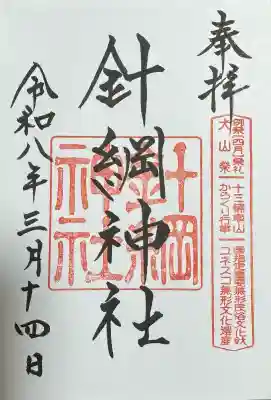 奉拝
犬山祭
十三輌車山
からくり行事
国指定重要無形民俗文化財
ユネスコ無形文化遺産
針綱神社
針綱神社
令和八年三月十四日